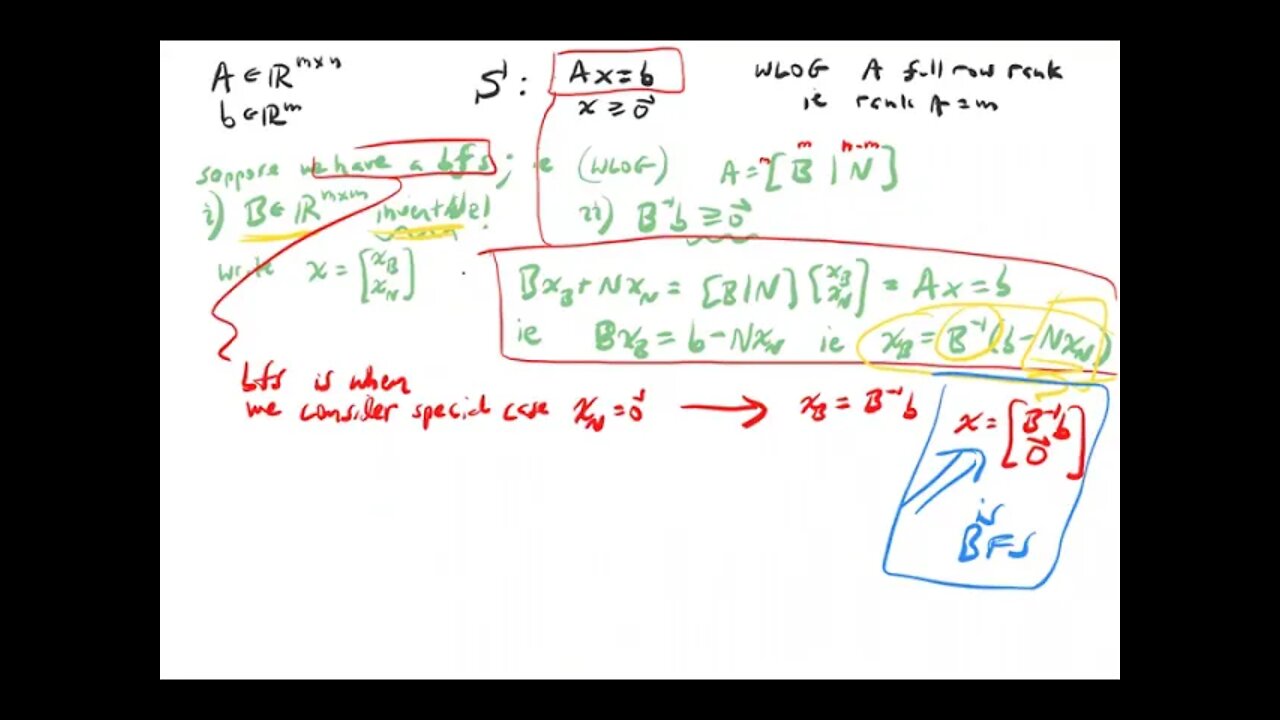 A ∈ ℝ^{m×n} S: Ax = b WLOG A full row rank
b ∈ ℝ^m x ≥ 0⃗ ie rank A = m
suppose we have a bfs; ie (WLOG) A = m[B | N] m n-m
i) B ∈ ℝ^{m×m} invertible! ii) B⁻¹b ≥ 0⃗
write x = [x_B x_N]
Bx_B + Nx_N = [B|N] [x_B x_N] = Ax = b
ie Bx_B = b - Nx_N ie x_B = B⁻¹(b - Nx_N)
bfs is when
we consider special case x_N = 0⃗ → x_B = B⁻¹b x = [B⁻¹b 0⃗]
is
BFS